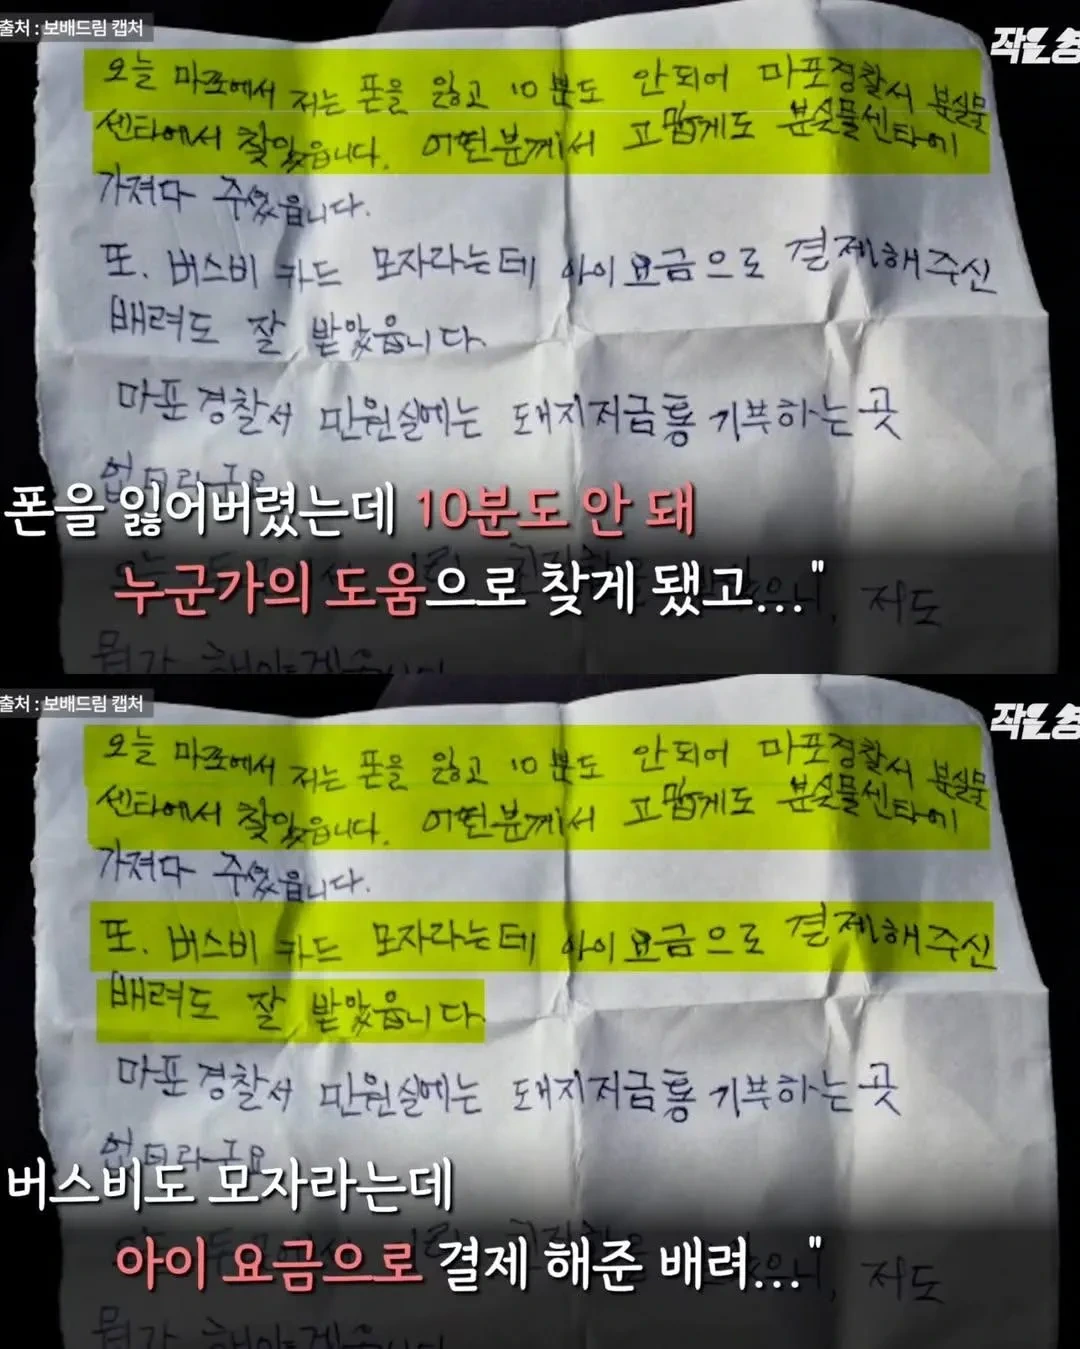 출처 : 보배드림 캡처
작은 숭
오늘 마포에서 저는 폰을 잃고 10분도 안되어 마포경찰서 분실물
센타에서 찾았읍니다. 어떤분께서 고맙게도 분실물센타에
가져다 주셨읍니다.
또. 버스비 카드 모자라는데 아이요금으로 결제해주신
배려도 잘 받았읍니다.
마포경찰서 민원실에는 돼지저금통 기부하는 곳
없더라구요
폰을 잃어버렸는데 10분도 안 돼
누군가의 도움으로 찾게 됐고..."
저도
뭔가 해야겠읍니다
출처 : 보배드림 캡처
오늘 마포에서 저는 폰을 잃고 10분도 안되어 마포경찰서 분실물
센타에서 찾았읍니다. 어떤분께서 고맙게도 분실물센타에
가져다 주셨읍니다.
또. 버스비 카드 모자라는데 아이요금으로 결제해주신
배려도 잘 받았읍니다.
마포경찰서 민원실에는 돼지저금통 기부하는 곳
없더라구요
버스비도 모자라는데
아이 요금으로 결제 해준 배려..."
저도